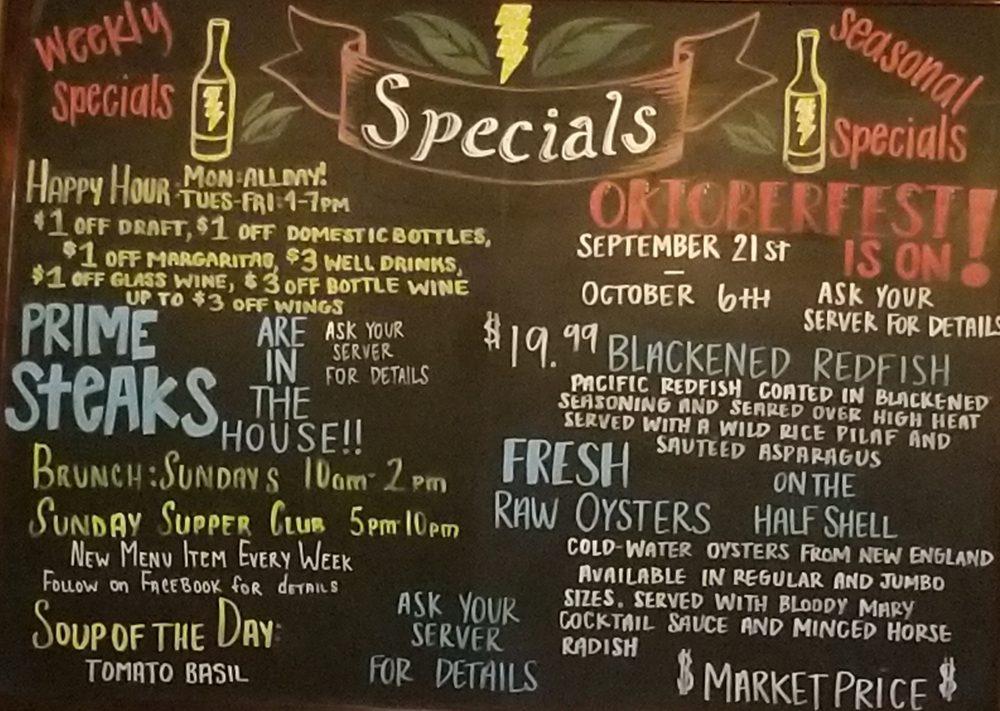 Weekly
Specials
Specials
Seasonal
Specials
HAPPY HOUR MON: ALL DAY!
TUES-FRI: 4-7PM
$1 OFF DRAFT, $1 OFF DOMESTIC BOTTLES,
$1 OFF MARGARITAS, $3 WELL DRINKS,
$1 OFF GLASS WINE, $3 OFF BOTTLE WINE
UP TO $3 OFF WINGS
PRIME
STEAKS
ARE
IN
THE
HOUSE!!
ASK YOUR
SERVER
FOR DETAILS
BRUNCH: SUNDAYS 10am-2pm
SUNDAY SUPPER CLUB 5pm-10pm
NEW MENU ITEM EVERY WEEK
FOLLOW on FACEBOOK for DETAILS
SOUP OF THE DAY:
TOMATO BASIL
ASK YOUR
SERVER
FOR DETAILS
OKTOBERFEST
IS ON!
SEPTEMBER 21st
-
OCTOBER 6TH
ASK YOUR
SERVER FOR DETAILS
$19.99 BLACKENED REDFISH
PACIFIC REDFISH COATED IN BLACKENED
SEASONING AND SEARED OVER HIGH HEAT
SERVED WITH A WILD RICE PILAF AND
SAUTEED ASPARAGUS
FRESH
RAW OYSTERS
ON THE
HALF SHELL
COLD-WATER OYSTERS FROM NEW ENGLAND
AVAILABLE IN REGULAR AND JUMBO
SIZES. SERVED WITH BLOODY MARY
COCKTAIL SAUCE AND MINCED HORSE
RADISH
$ MARKET PRICE $